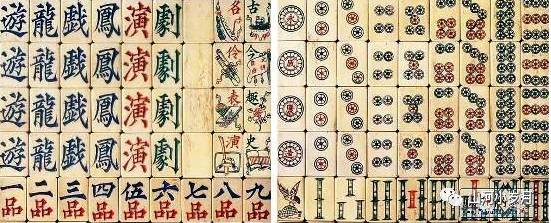 遊 龍 戲 鳳 演 劇 名 古
遊 龍 戲 鳳 演 劇 伶
遊 龍 戲 鳳 演 劇 表 趣
遊 龍 戲 鳳 演 劇 演 史
一 二 三 四 伍 六 七 八 九
品 品 品 品 品 品 品 品 品
山河小岁月